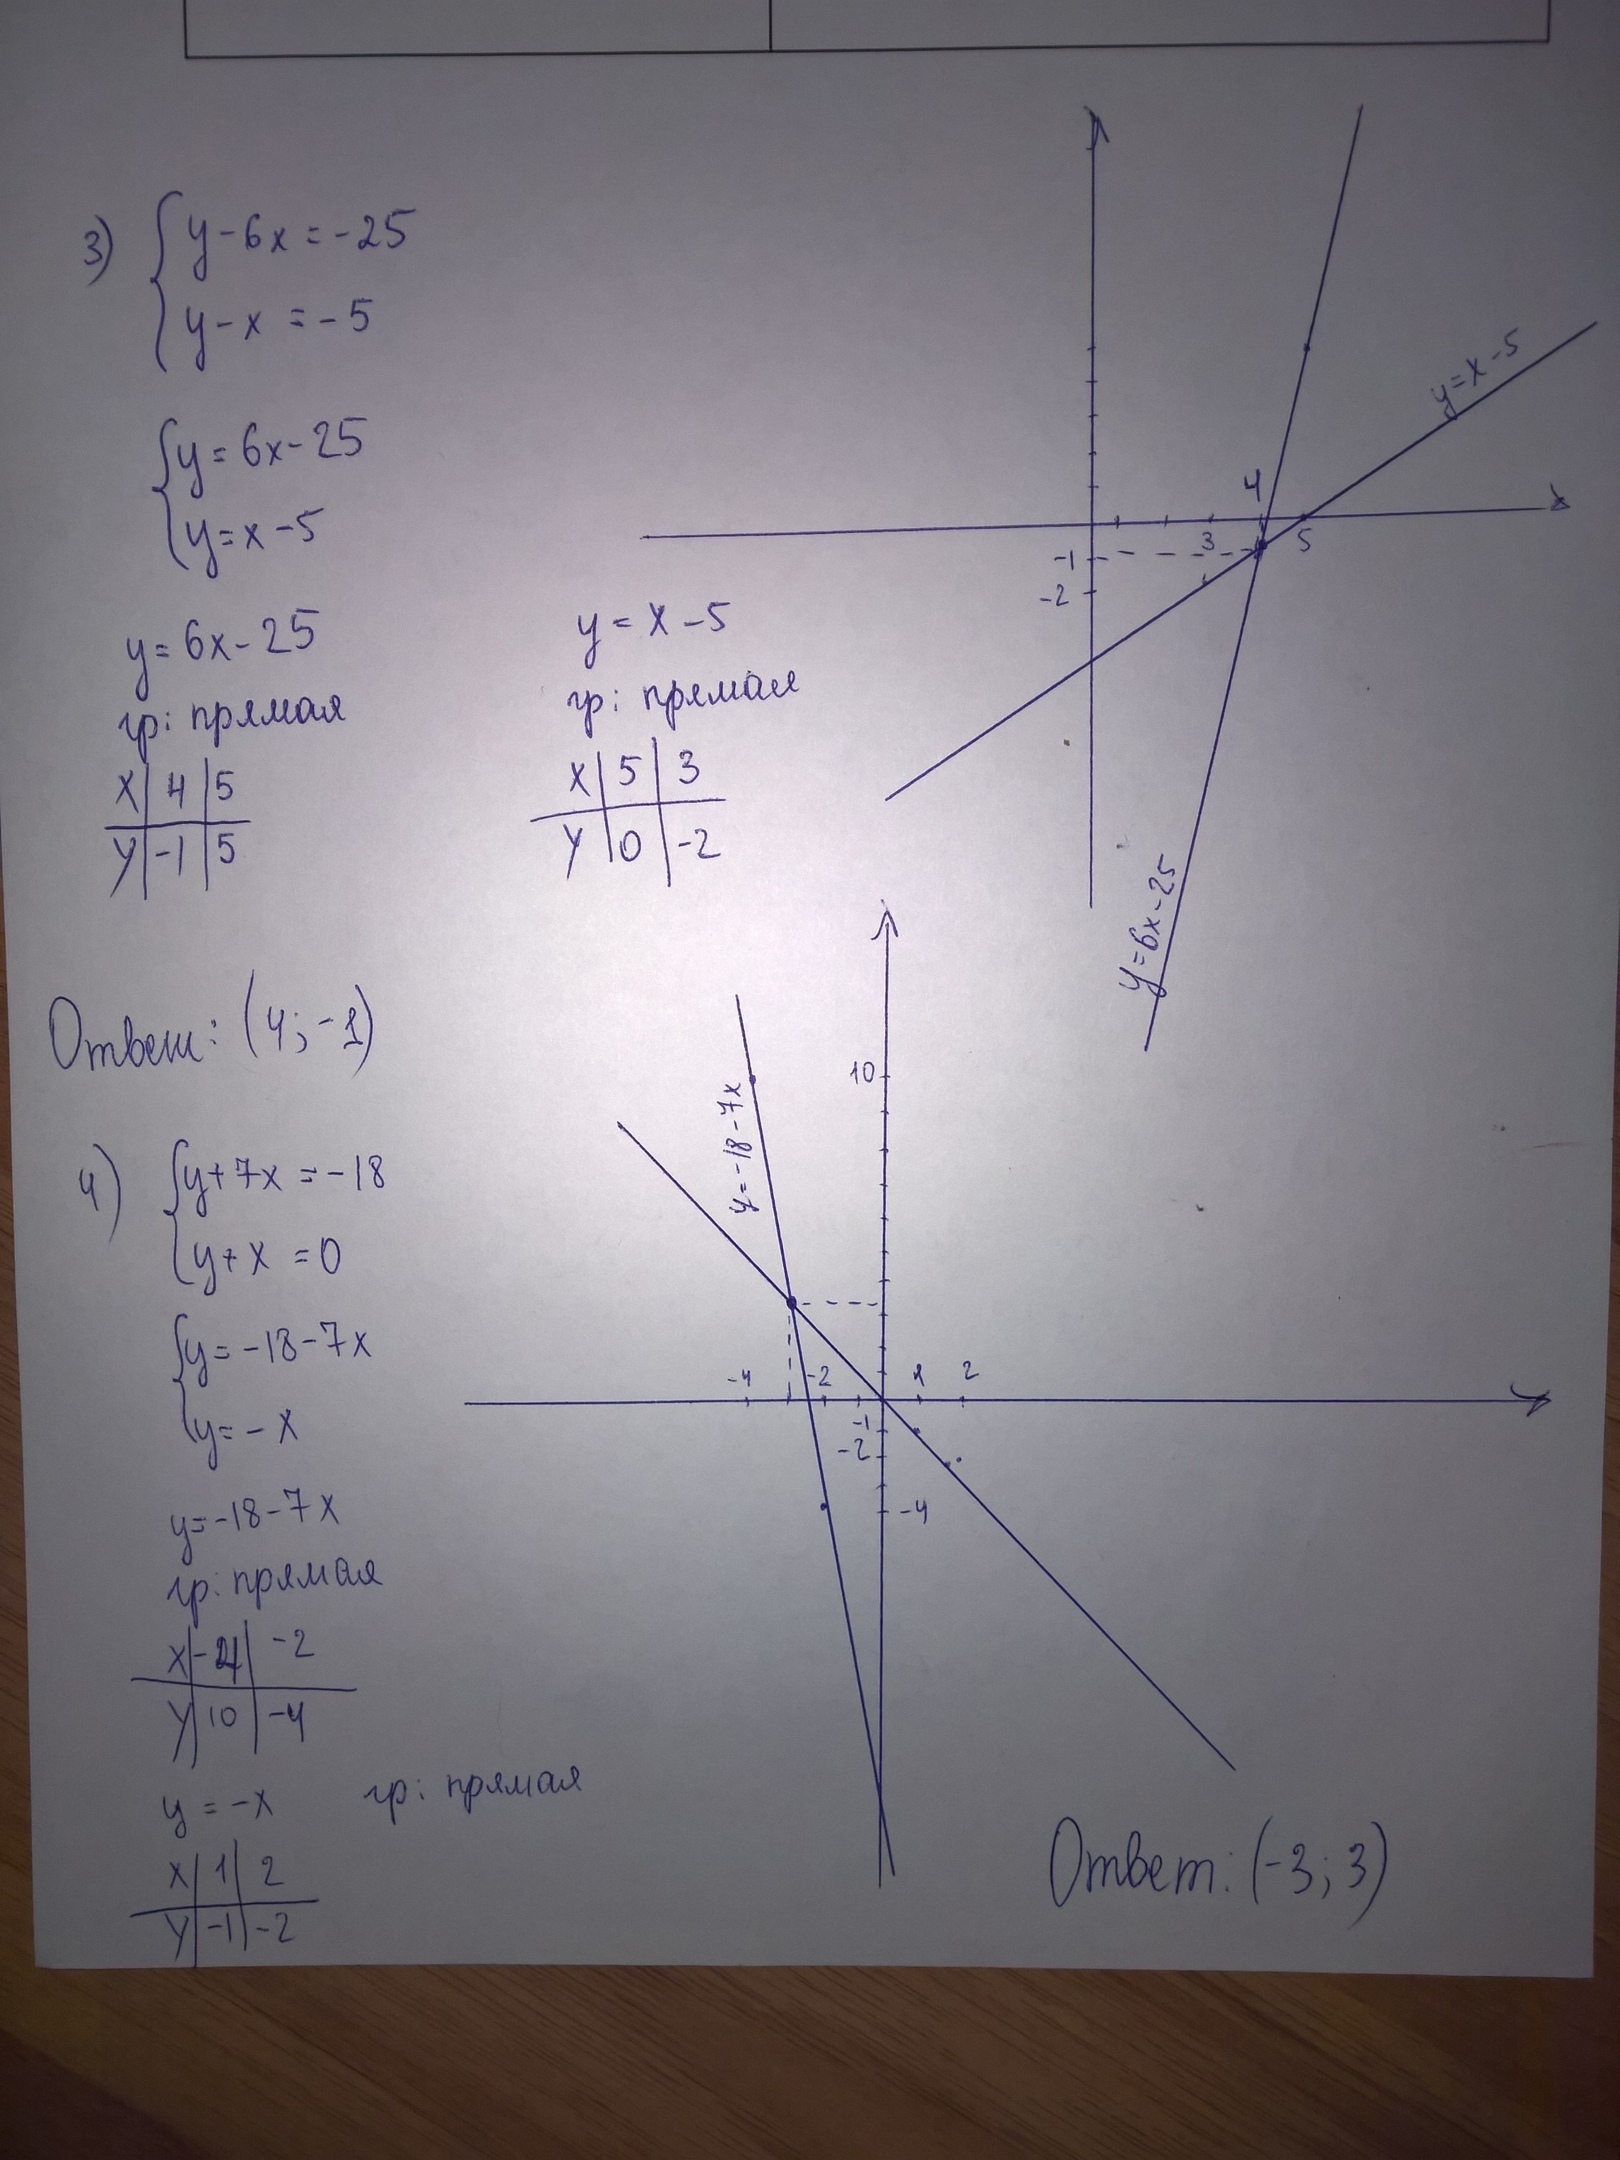 3) { y-6x=-25
y-x=-5
{ y=6x-25
y=x-5
y=6x-25
гр: прямая
x | 4 | 5
y | -1 | 5
y=x-5
гр: прямая
x | 5 | 3
y | 0 | -2
4
3
5
-1
-2
y=x-5
y=6x-25
Ответ: (4; -1)
4) { y+7x=-18
y+x=0
{ y=-18-7x
y=-x
y=-18-7x
гр: прямая
x | -4 | -2
y | 10 | -4
y=-x гр: прямая
x | 1 | 2
y | -1 | -2
10
y=-18-7x
-4
-2
1
2
-1
-2
-4
Ответ: (-3; 3)